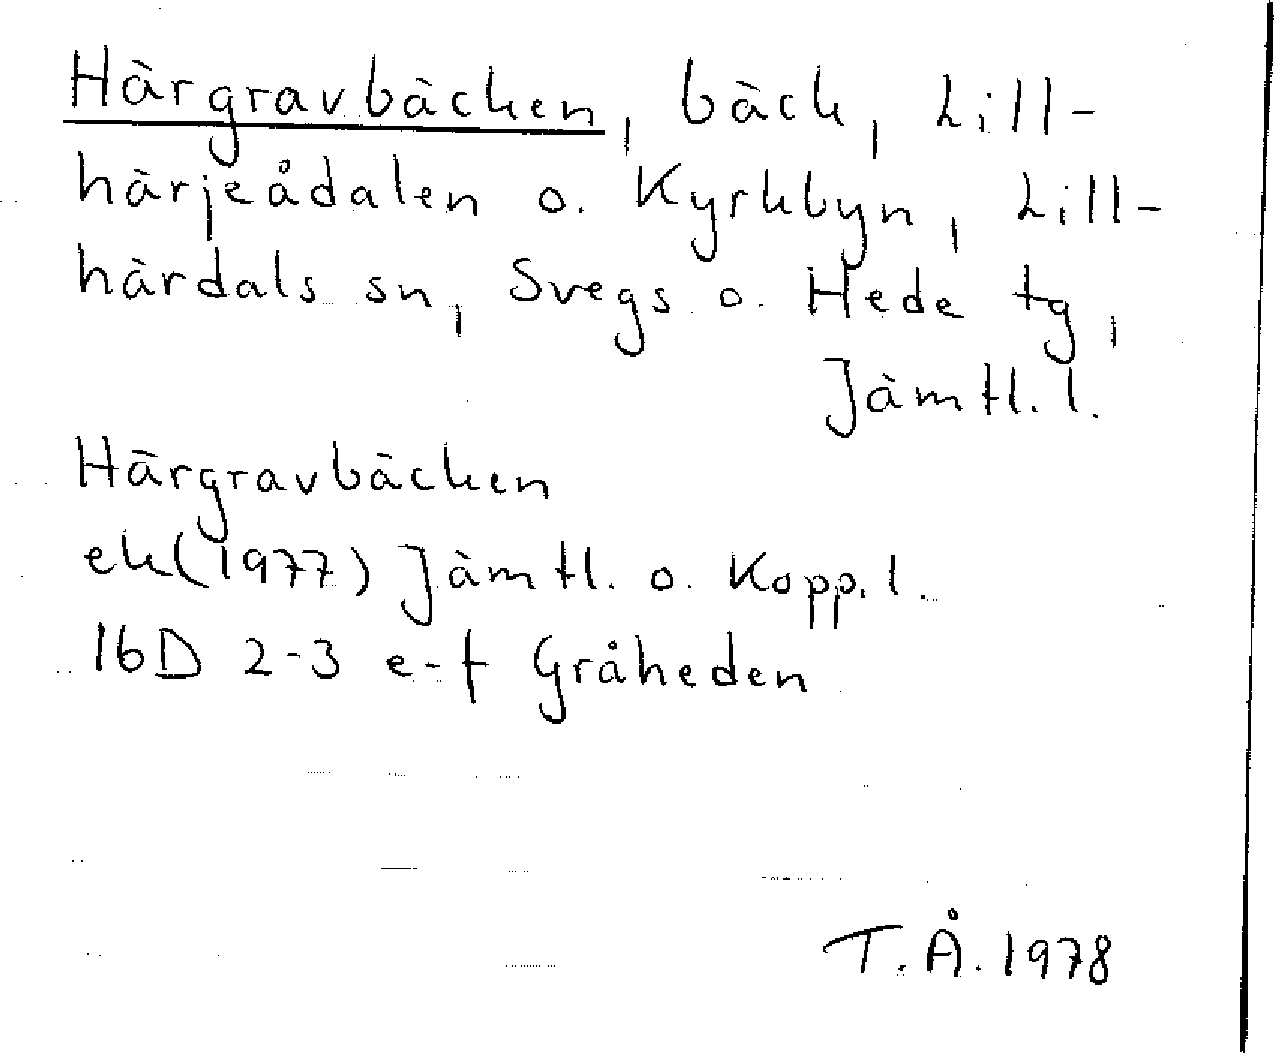 Härgravbäcken, bäck, Lill-
härjeådalen o. Kyrkbyn, Lill-
härdals sn, Svegs o. Hede tg,
Jämtl. l.
Härgravbäcken
ek(1977) Jämtl. o. Kopp. l.
16D 2-3 e-f Gråheden
T.Å. 1978